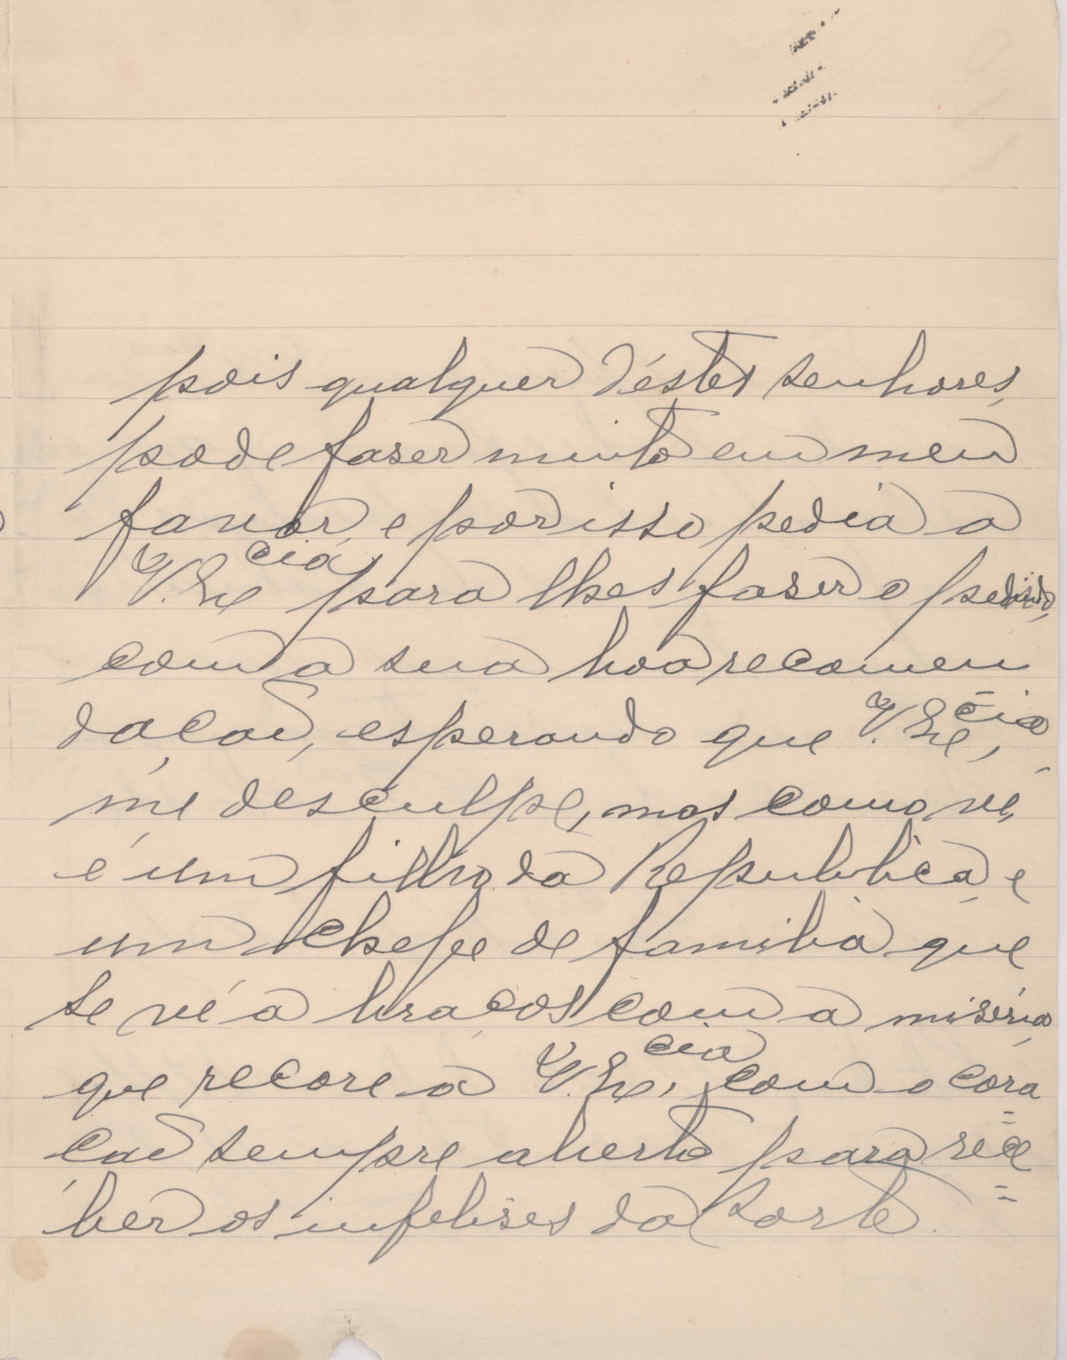 pois qualquer d'éstes senhores,
pode faser muito em meu
favor, e por isso pedia a
V. Ex.cia para lhes faser o pedido,
com a sua boa recomen
dação, esperando que V. Ex.cia,
me desculpe, mas como vé,
é um filho da Republica e
um chefe de familia que
se vé a braços com a miséria
que recore a V. Ex.cia, com o cora
ção sempre aberto para rece
ber os infelises da sorte.